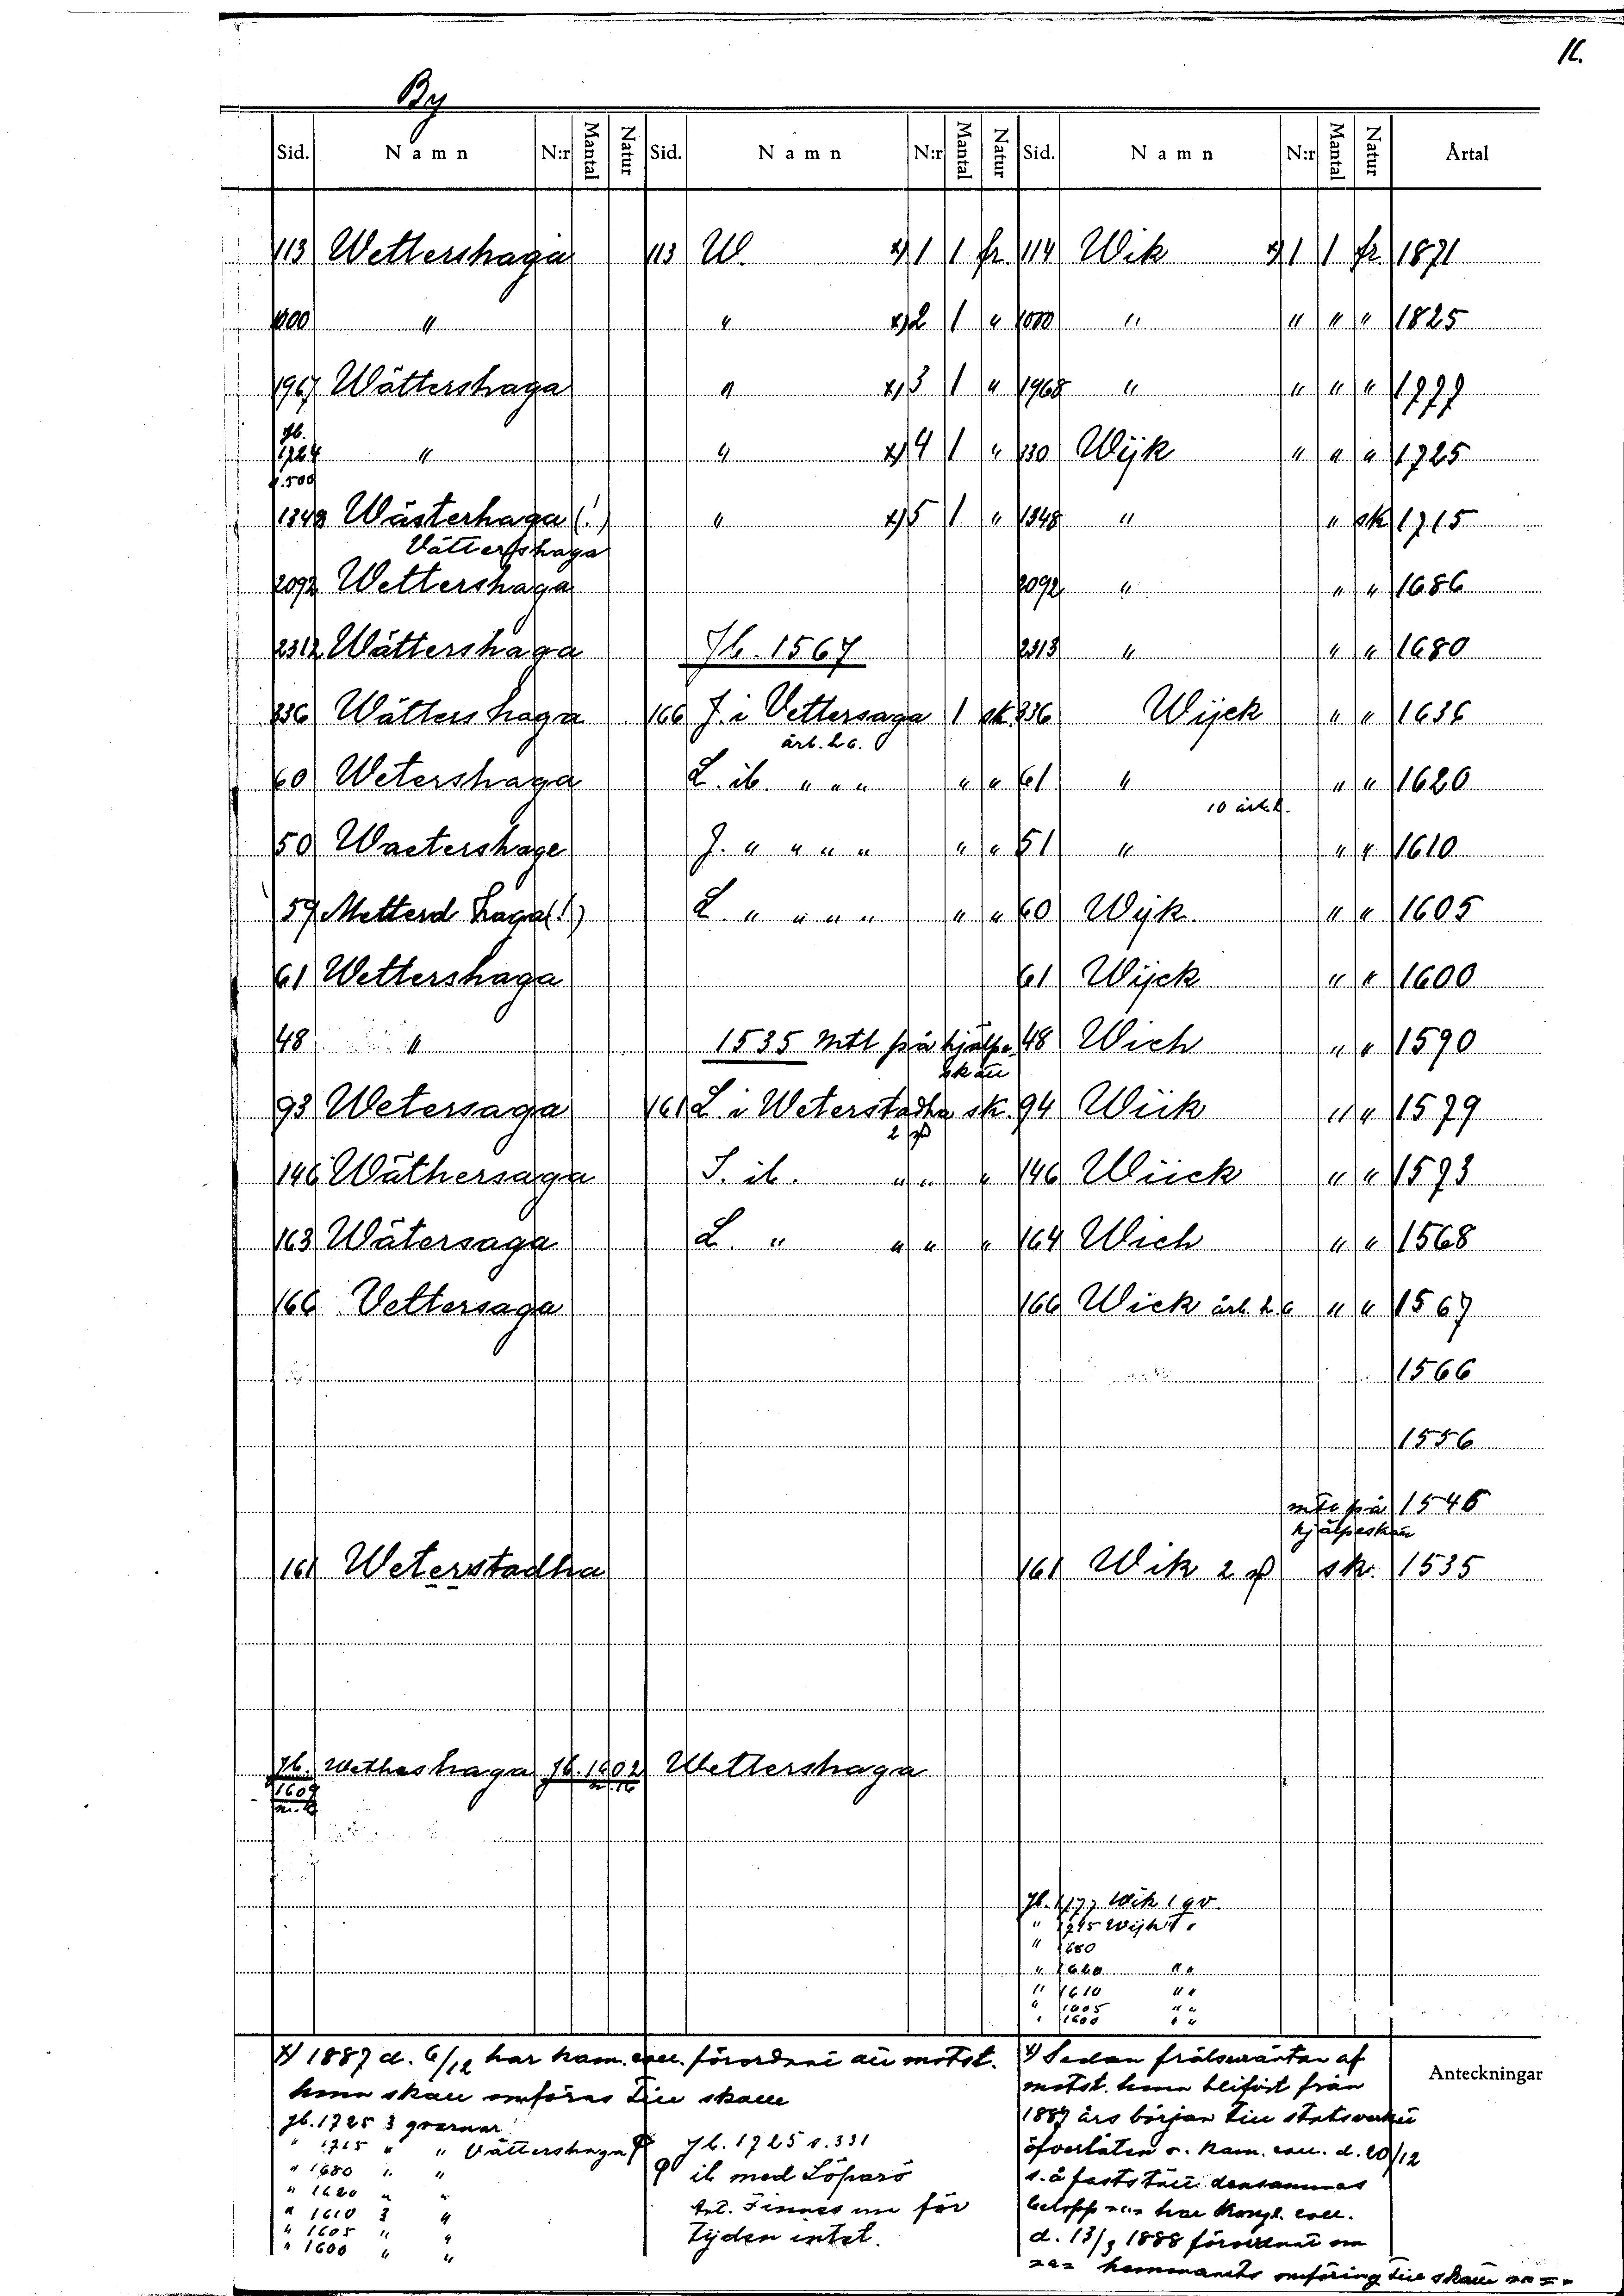 16.
By
Sid. Namn N:r Mantal Natur Sid. Namn N:r Mantal Natur Sid. Namn N:r Mantal Natur Årtal
113 Wettershaga 113 W. x) 1 1 fr. 114 Wik x) 1 1 fr. 1871
1000 " " x) 2 1 " 1000 " " " " 1825
1967 Wättershaga " x) 3 1 " 1968 " " " " 1777
Jb. 1724 s. 500 " " x) 4 1 " 330 Wijk " " " 1725
1348 Wästerhaga (!) " x) 5 1 " 1348 " " sk 1715
Vättershaga
2092 Wettershaga 2092 " " " 1686
2312 Wättershaga Jb. 1567 2313 " " " 1680
236 Wätters haga 166 J. i Vettersaga 1 sk. 236 Wijck " " 1636
ärl. h 6.
60 Wetershaga L. ib. " " " " " 61 " " " 1620
10 ärl. h.
50 Waetershage J. " " " " " " 51 " " " 1610
59 Metterd haga (!) L. " " " " " " 60 Wijk. " " 1605
61 Wettershaga 61 Wijck " " 1600
48 " 1535 mtl på hjälpe 48 Wich " " 1590
skatt
93 Wetersaga 161 L i Weterstadha sk. 94 Wiik " " 1579
146 Wäthersaga S. ib. " " " 146 Wiick " " 1573
163 Wätersaga L. " " " " 164 Wich " " 1568
166 Vettersaga 166 Wick ärl. h 6 " " 1567
1566
1556
mtl på 1546
hjälpeskatt
161 Weterstadha 161 Wik 2 sk. 1535
Jb. Wetheshaga Jb. 1602 Wettershaga
1609
Jb. 1777 Wik 1 qv.
" 1725 Wijk 1 "
" 1680
" 1620 " "
" 1610 " "
" 1605 " "
" 1600 " "
x) 1887 d. 6/12 har kam. coll. förordnat att motst.
hmn skall omföras till skatte
Jb. 1725 3 qvarnar
" 1715 " " Vättershaga
" 1680 " "
" 1620 " "
" 1610 3 "
" 1605 " "
" 1600 " "
Jb. 1725 s. 331
ib med Löparö
Ant. Finnes nu för
tyden intet.
x) Sedan frälseräntan af
motst. hmn blifvit från
1887 års början till statsverket
öfverlåten o. kam. coll. d. 20/12
s. å fastställt densammas
belopp har Kongl. coll.
d. 13/3 1888 förordnat om
hemmanets omföring till skatte
Anteckningar